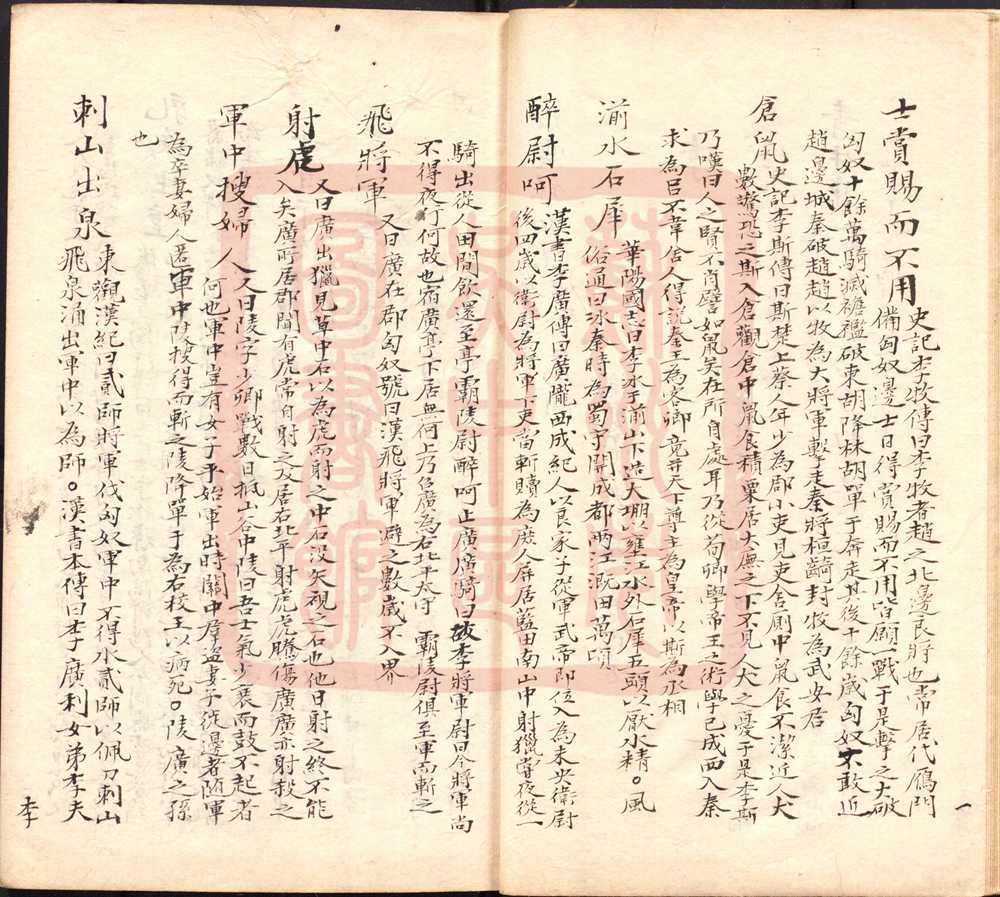 士賞賜而不用 史記李牧傳曰李牧者趙之北邊良將也常居代鴈門
備匈奴邊士日得賞賜而不用皆願一戰于是擊之大破
匈奴十餘萬騎滅襜襤破東胡降林胡單于奔走其後十餘歲匈奴不敢近
趙邊城秦破趙趙以牧為大將軍擊走秦將桓齮封牧為武安君
倉鼠 史記李斯傳曰斯楚上蔡人年少為郡小吏見吏舍廁中鼠食不潔近人犬
數驚恐之斯入倉觀倉中鼠食積粟居大廡之下不見人犬之憂于是李斯
乃嘆曰人之賢不肖譬如鼠矣在所自處耳乃從荀卿學帝王之術學已成西入秦
求為呂不韋舍人得說秦王為客卿竟并天下尊主為皇帝以斯為丞相
湔水石犀 華陽國志曰李冰于湔山下造大堋以壅江水外石犀五頭以厭水精。風
俗通曰冰秦時為蜀守開成都兩江溉田萬頃
醉尉呵 漢書李廣傳曰廣隴西成紀人以良家子從軍武帝即位入為未央衛尉
後四歲以衛尉為將軍下吏當斬贖為庶人屏居藍田南山中射獵嘗夜從一
騎出從人田間飲還至亭霸陵尉醉呵止廣廣騎曰故李將軍尉曰今將軍尚
不得夜行何故也宿廣亭下居無何上乃召廣為右北平太守 霸陵尉俱至軍而斬之
飛將軍 又曰廣在郡匈奴號曰漢飛將軍避之數歲不入界
射虎 又曰廣出獵見草中石以為虎而射之中石没矢視之石也他日射之終不能
入矣廣所居郡聞有虎常自射之及居右北平射虎虎騰傷廣廣亦射殺之
軍中搜婦 人又曰陵字少卿戰數日抵山谷中陵曰吾士氣少衰而鼓不起者
何也軍中豈有女子乎始軍出時關中群盜妻子從邊者随軍
為卒妻婦人匿軍中陵搜得而斬之陵降單于為右校王以病死。陵廣之孫
也
刺山出泉 東觀漢紀曰貳師將軍伐匈奴軍中不得水貳師以佩刀刺山
飛泉涌出軍中以為師。漢書本傳曰李廣利女弟李夫
一
李